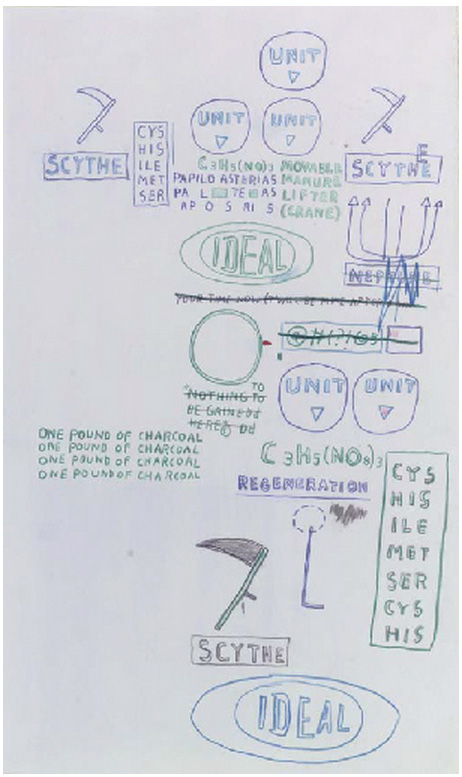 UNIT
UNIT UNIT
CYS
HIS
ILE
MET
SER
SCYTHE
C3H5(NO3) MOVABLE
PAPILO ASTERIAS MANURE
LIFTER
(CRANE)
SCYTHE
E
IDEAL
NEPTUNE
YOUR TIME NOW
TO
"NOTHING TO
BE GAINED
HERE"
UNIT UNIT
ONE POUND OF CHARCOAL
ONE POUND OF CHARCOAL
ONE POUND OF CHARCOAL
ONE POUND OF CHARCOAL
REGENERATION
CYS
HIS
ILE
MET
SER
CYS
HIS
SCYTHE
IDEAL